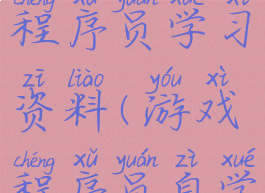 chéng xù yuán xué xí
程序员学习
zī liào yóu xì
资料(游戏
chéng xǔ yuán zì xué
程序员自学